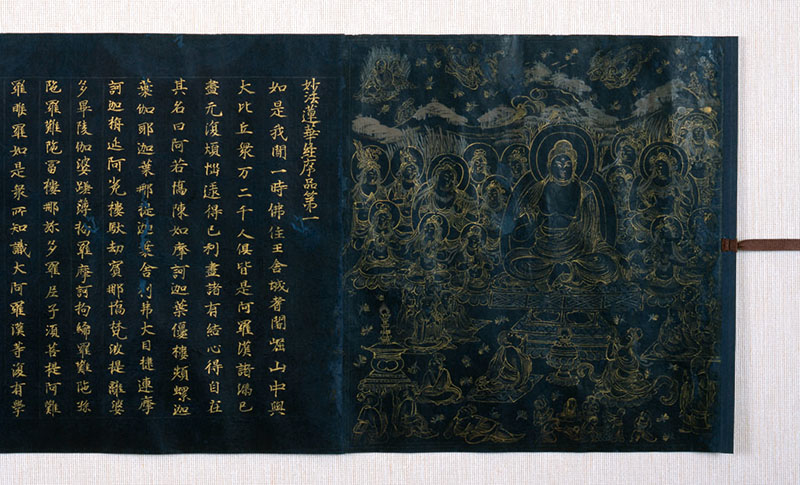 妙法蓮華經序品第一
如是我聞一時佛住王舍城耆闍崛山中與
大比丘衆万二千人俱皆是阿羅漢諸漏已
盡无復煩惱逮得己利盡諸有結心得自在
其名曰阿若憍陳如摩訶迦葉優樓頻螺迦
葉伽耶迦葉那提迦葉舍利弗大目揵連摩
訶迦旃延阿㝹樓馱劫賓那憍梵波提離婆
多畢陵伽婆蹉薄拘羅摩訶拘絺羅難陁孫
陁羅難陁富樓那弥多羅尼子須菩提阿難
羅睺羅如是衆所知識大阿羅漢等復有學